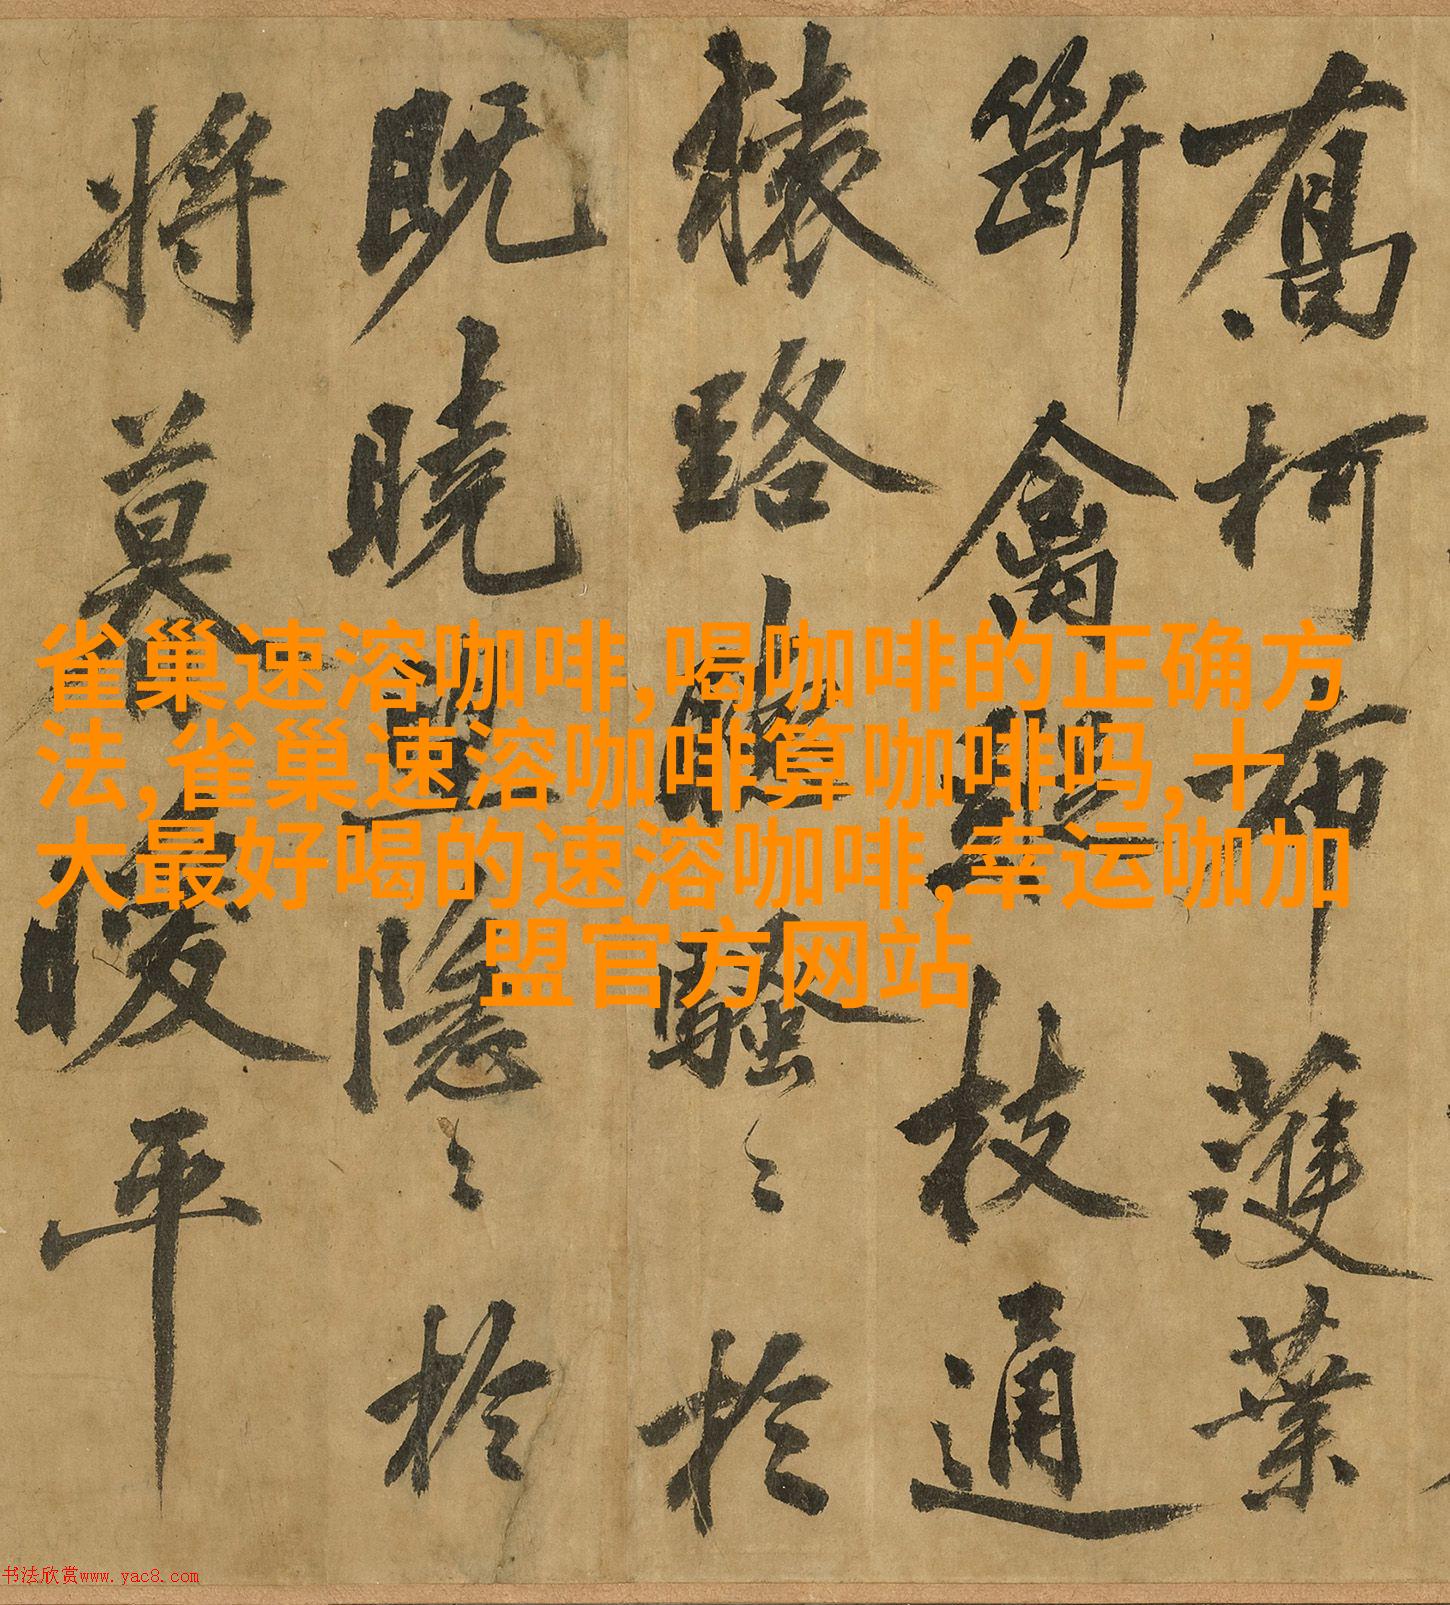 喬柯布濩葉
斷禽枝通
猿路騷〻於
既曉隱〻於
將暮暖平
雀巢速溶咖啡,喝咖啡的正确方
法,雀巢速溶咖啡算咖啡吗,十
大最好喝的速溶咖啡,幸运咖加
盟官方网站
书法欣赏www.yac8.com